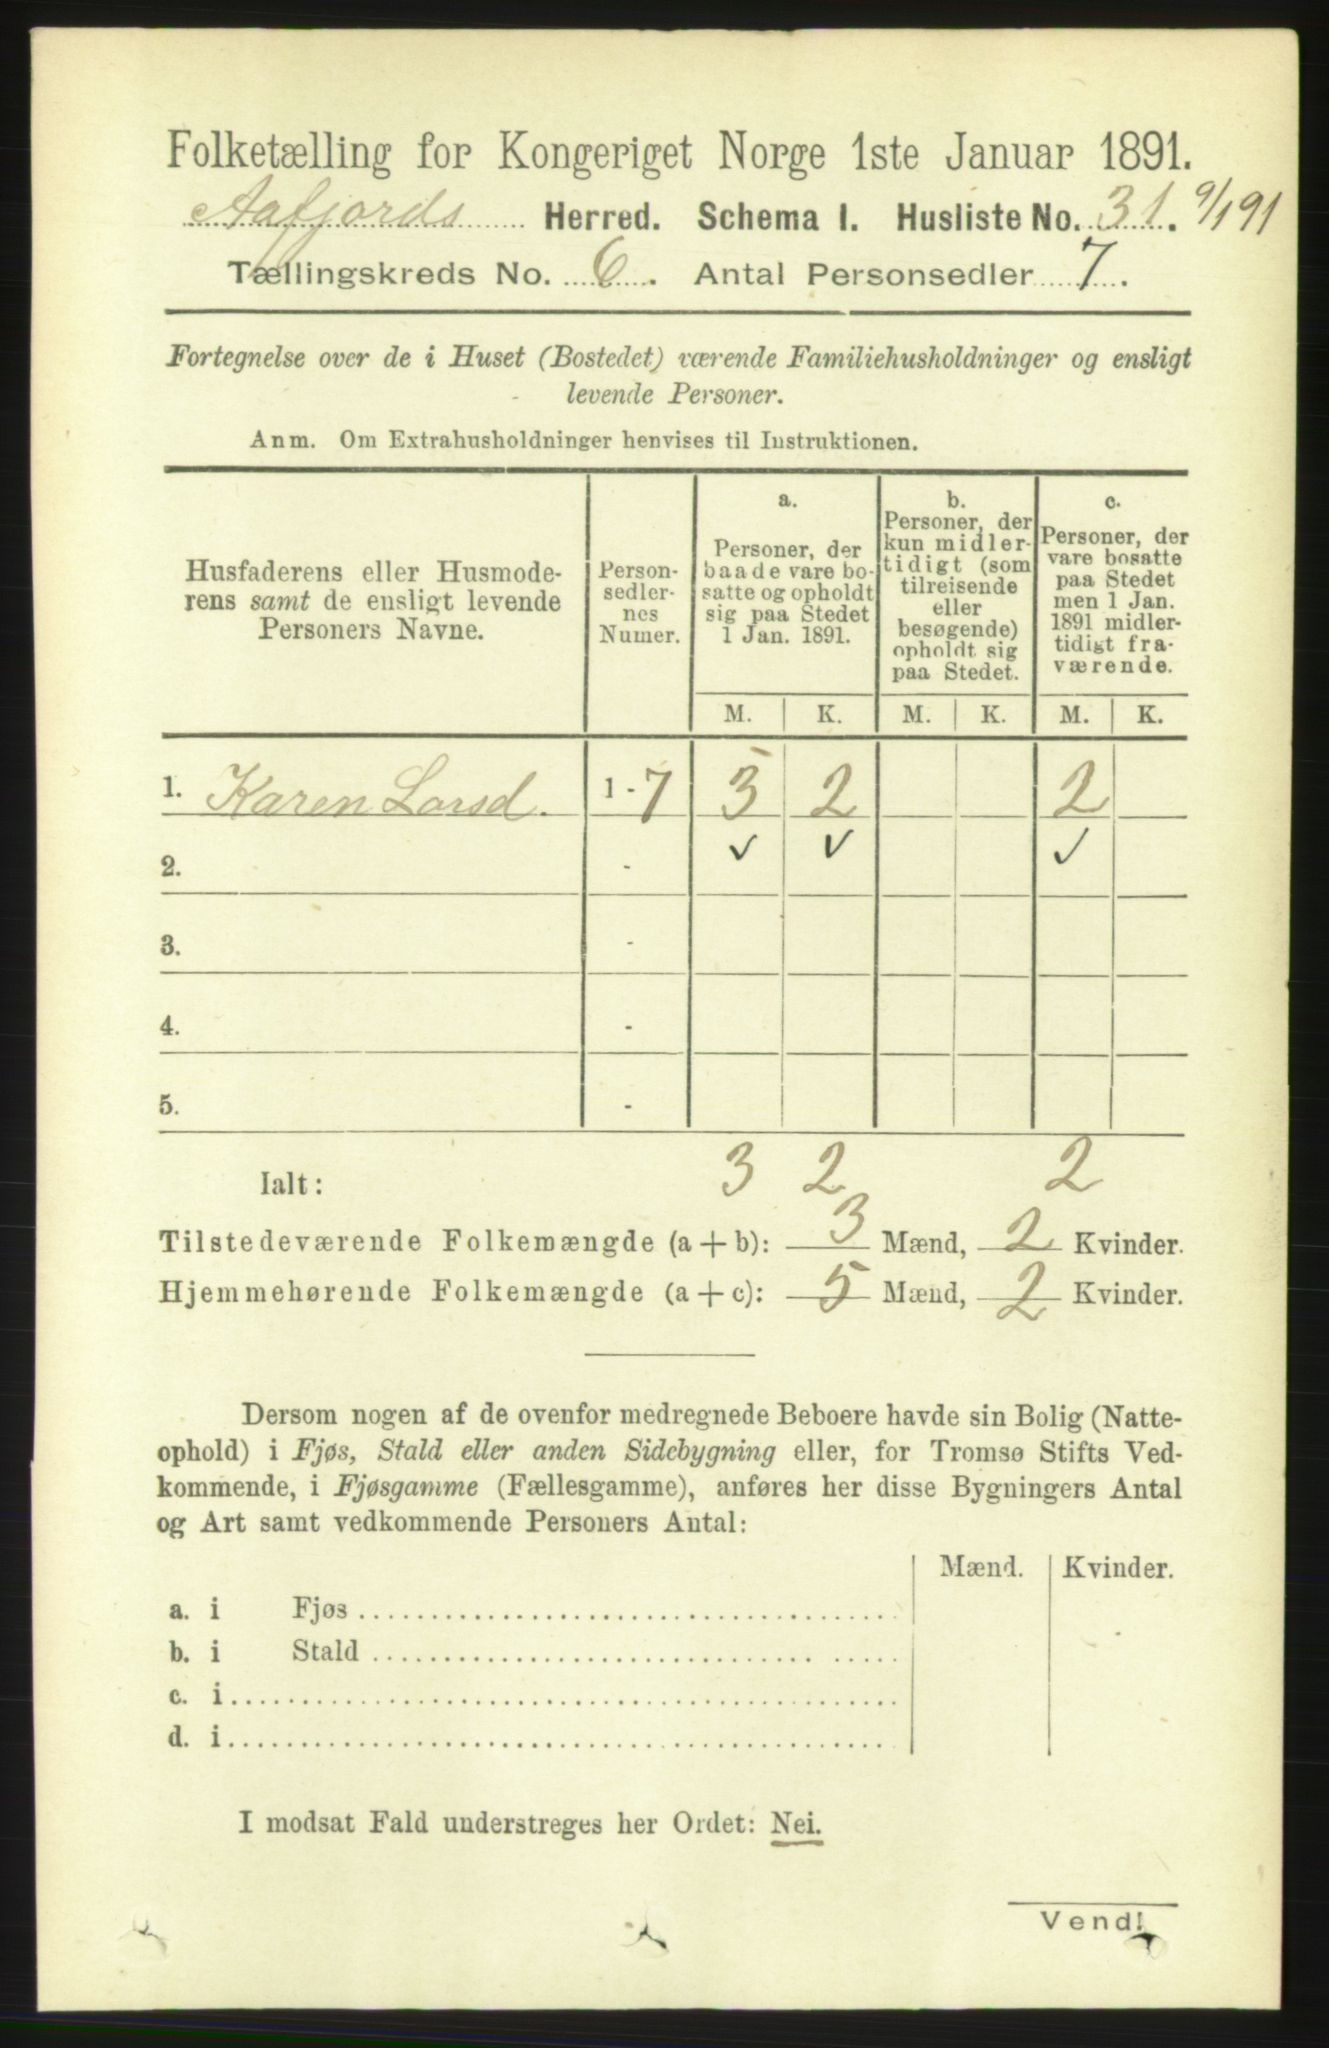 Folketælling for Kongeriget Norge 1ste Januar 1891.
Aafjords Herred. Schema I. Husliste No. 31. 9/1 91
Tællingskreds No. 6. Antal Personsedler 7.
Fortegnelse over de i Huset (Bostedet) værende Familiehusholdninger og ensligt
levende Personer.
Anm. Om Extrahusholdninger henvises til Instruktionen.
Husfaderens eller Husmode-
rens samt de ensligt levende
Personers Navne.
Person-
sedler-
nes
Numer.
a.
Personer, der
baade vare bo-
satte og opholdt
sig paa Stedet
1 Jan. 1891.
b.
Personer, der
kun midler-
tidigt (som
tilreisende
eller
besøgende)
opholdt sig
paa Stedet.
c.
Personer, der
vare bosatte
paa Stedet
men 1 Jan.
1891 midler-
tidigt fra-
værende.
M. K. M. K. M. K.
1. Karen Larsd. 1 - 7 3 2 2
2. - ✓ ✓ ✓
3. -
4. -
5. -
Ialt: 3 2 2
Tilstedeværende Folkemængde (a + b): 3 Mænd, 2 Kvinder.
Hjemmehørende Folkemængde (a + c): 5 Mænd, 2 Kvinder.
Dersom nogen af de ovenfor medregnede Beboere havde sin Bolig (Natte-
ophold) i Fjøs, Stald eller anden Sidebygning eller, for Tromsø Stifts Ved-
kommende, i Fjøsgamme (Fællesgamme), anføres her disse Bygningers Antal
og Art samt vedkommende Personers Antal:
Mænd. Kvinder.
a. i Fjøs
b. i Stald
c. i
d. i
I modsat Fald understreges her Ordet: Nei.
Vend!